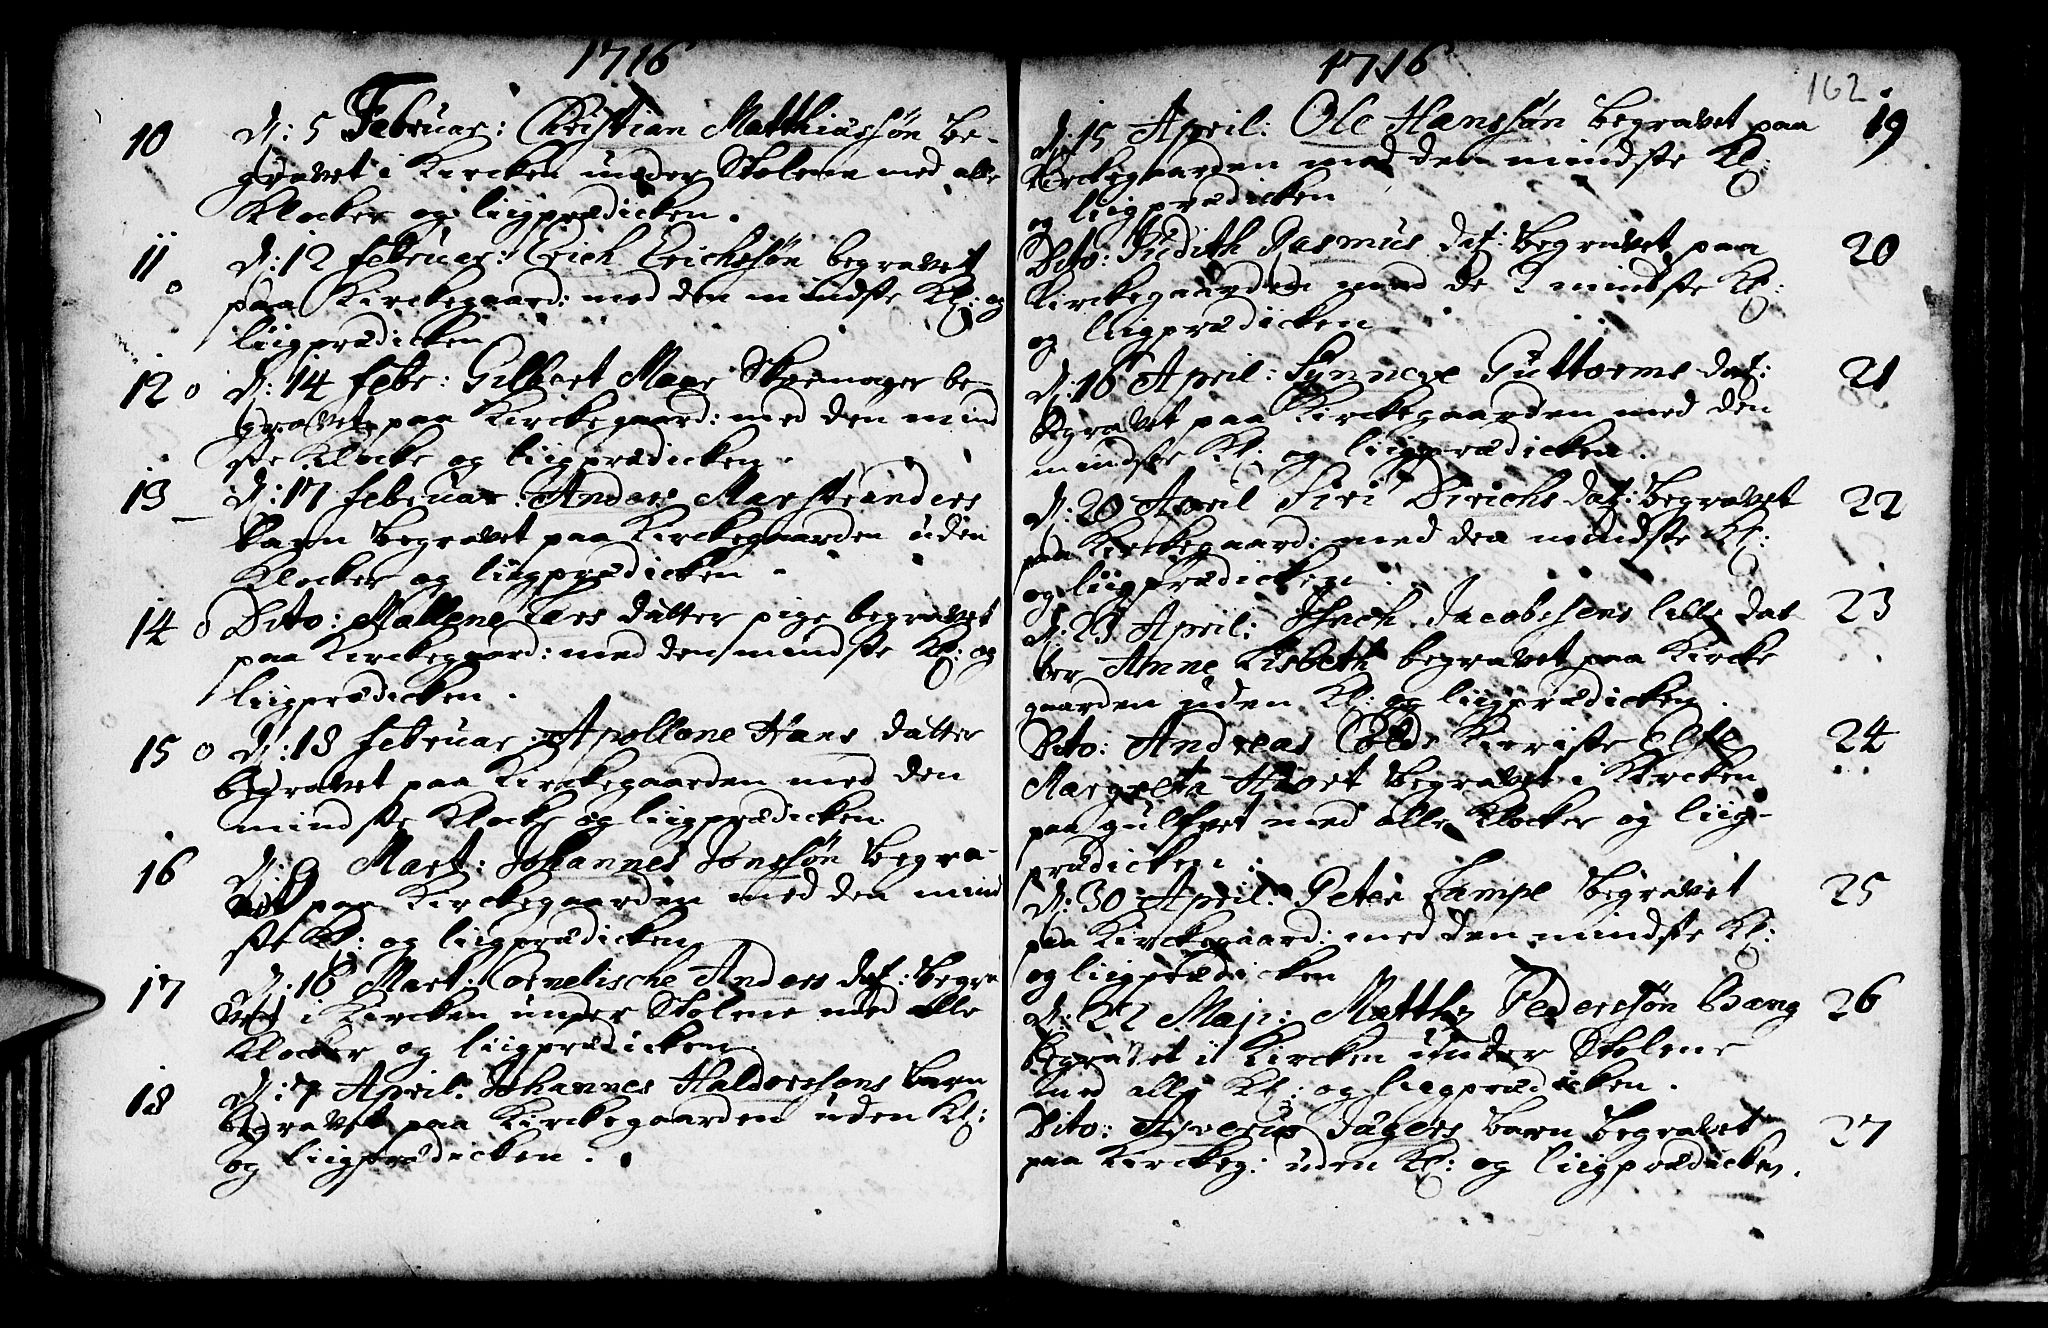 1716
10 d: 5 Februar: Christian Matthiassøn be-
gravet i Kircken under Stolene med alle
Klocker og liigprædicken.
11 d: 12 februar: Erich Erichssøn begravet
paa Kirckegaard: med den mindste Kl: og
liigprædicken
12 d: 14 febr: Gilbert Marr Skoemager be-
gravet paa Kirckegaard: med den mind
ste Klocke og liigprædicken.
13 d: 17 februar: Anders Marstranders
barn begravet paa Kirckegaarden uden
Klocker og liigprædicken.
14 Dito: Mallene Lars datter pige begravet
paa Kirckegaard: med den mindste Kl: og
liigprædicken.
15 d: 18 februar Apollone Hans datter
begravet paa Kirckegaarden med den
mindste Klocke og liigprædicken
16 d: 9 Mart: Johannes Jonssøn begra-
vet paa Kirckegaarden med den mind
ste Kl: og liigprædicken
17 d: 16 Mart: Cornelische Anders dat: begra
vet i Kircken under Stolene med alle
Klocker og liigprædicken.
18 d: 7 April: Johannes Haldorssons barn
begravet paa Kirckegaarden uden Kl:
og liigprædicken.
1716
162
d: 15 April: Ole Hanssøn begravet paa 19
Kirckegaarden med den mindste Kl:
og liigprædicken
Dito: Judith Rasmus dat: begravet paa 20
Kirckegaarden med de 2 mindste Kl:
og liigprædicken
d: 16 April: Synneve Guttorms dat: 21
begravet paa Kirckegaarden med den
mindste Kl: og liigprædicken.
d: 20 April Siri Dirichs dat: begravet 22
paa Kirckegaard: med den mindste Kl:
og liigprædicken.
d: 23 April: Jacobsens lille dat 23
ter Anne Lisbeth begravet paa Kircke
gaarden uden Kl: og liigprædicken.
Dito: Andreas Kieriste Else 24
Margreta begravet i Kircken
paa gulfvet med alle Klocker og liig-
prædicken:
d: 30 April: Peter Lampe begravet 25
paa Kirckegaard: med den mindste Kl:
og liigprædicken
d: 22 Maji: Matthis Pederssøn Bang 26
begravet i Kircken under Stolene
med alle Kl: og liigprædicken.
Dito: Jügers barn begravet 27
paa Kirckeg: uden Kl: og liigprædicken.